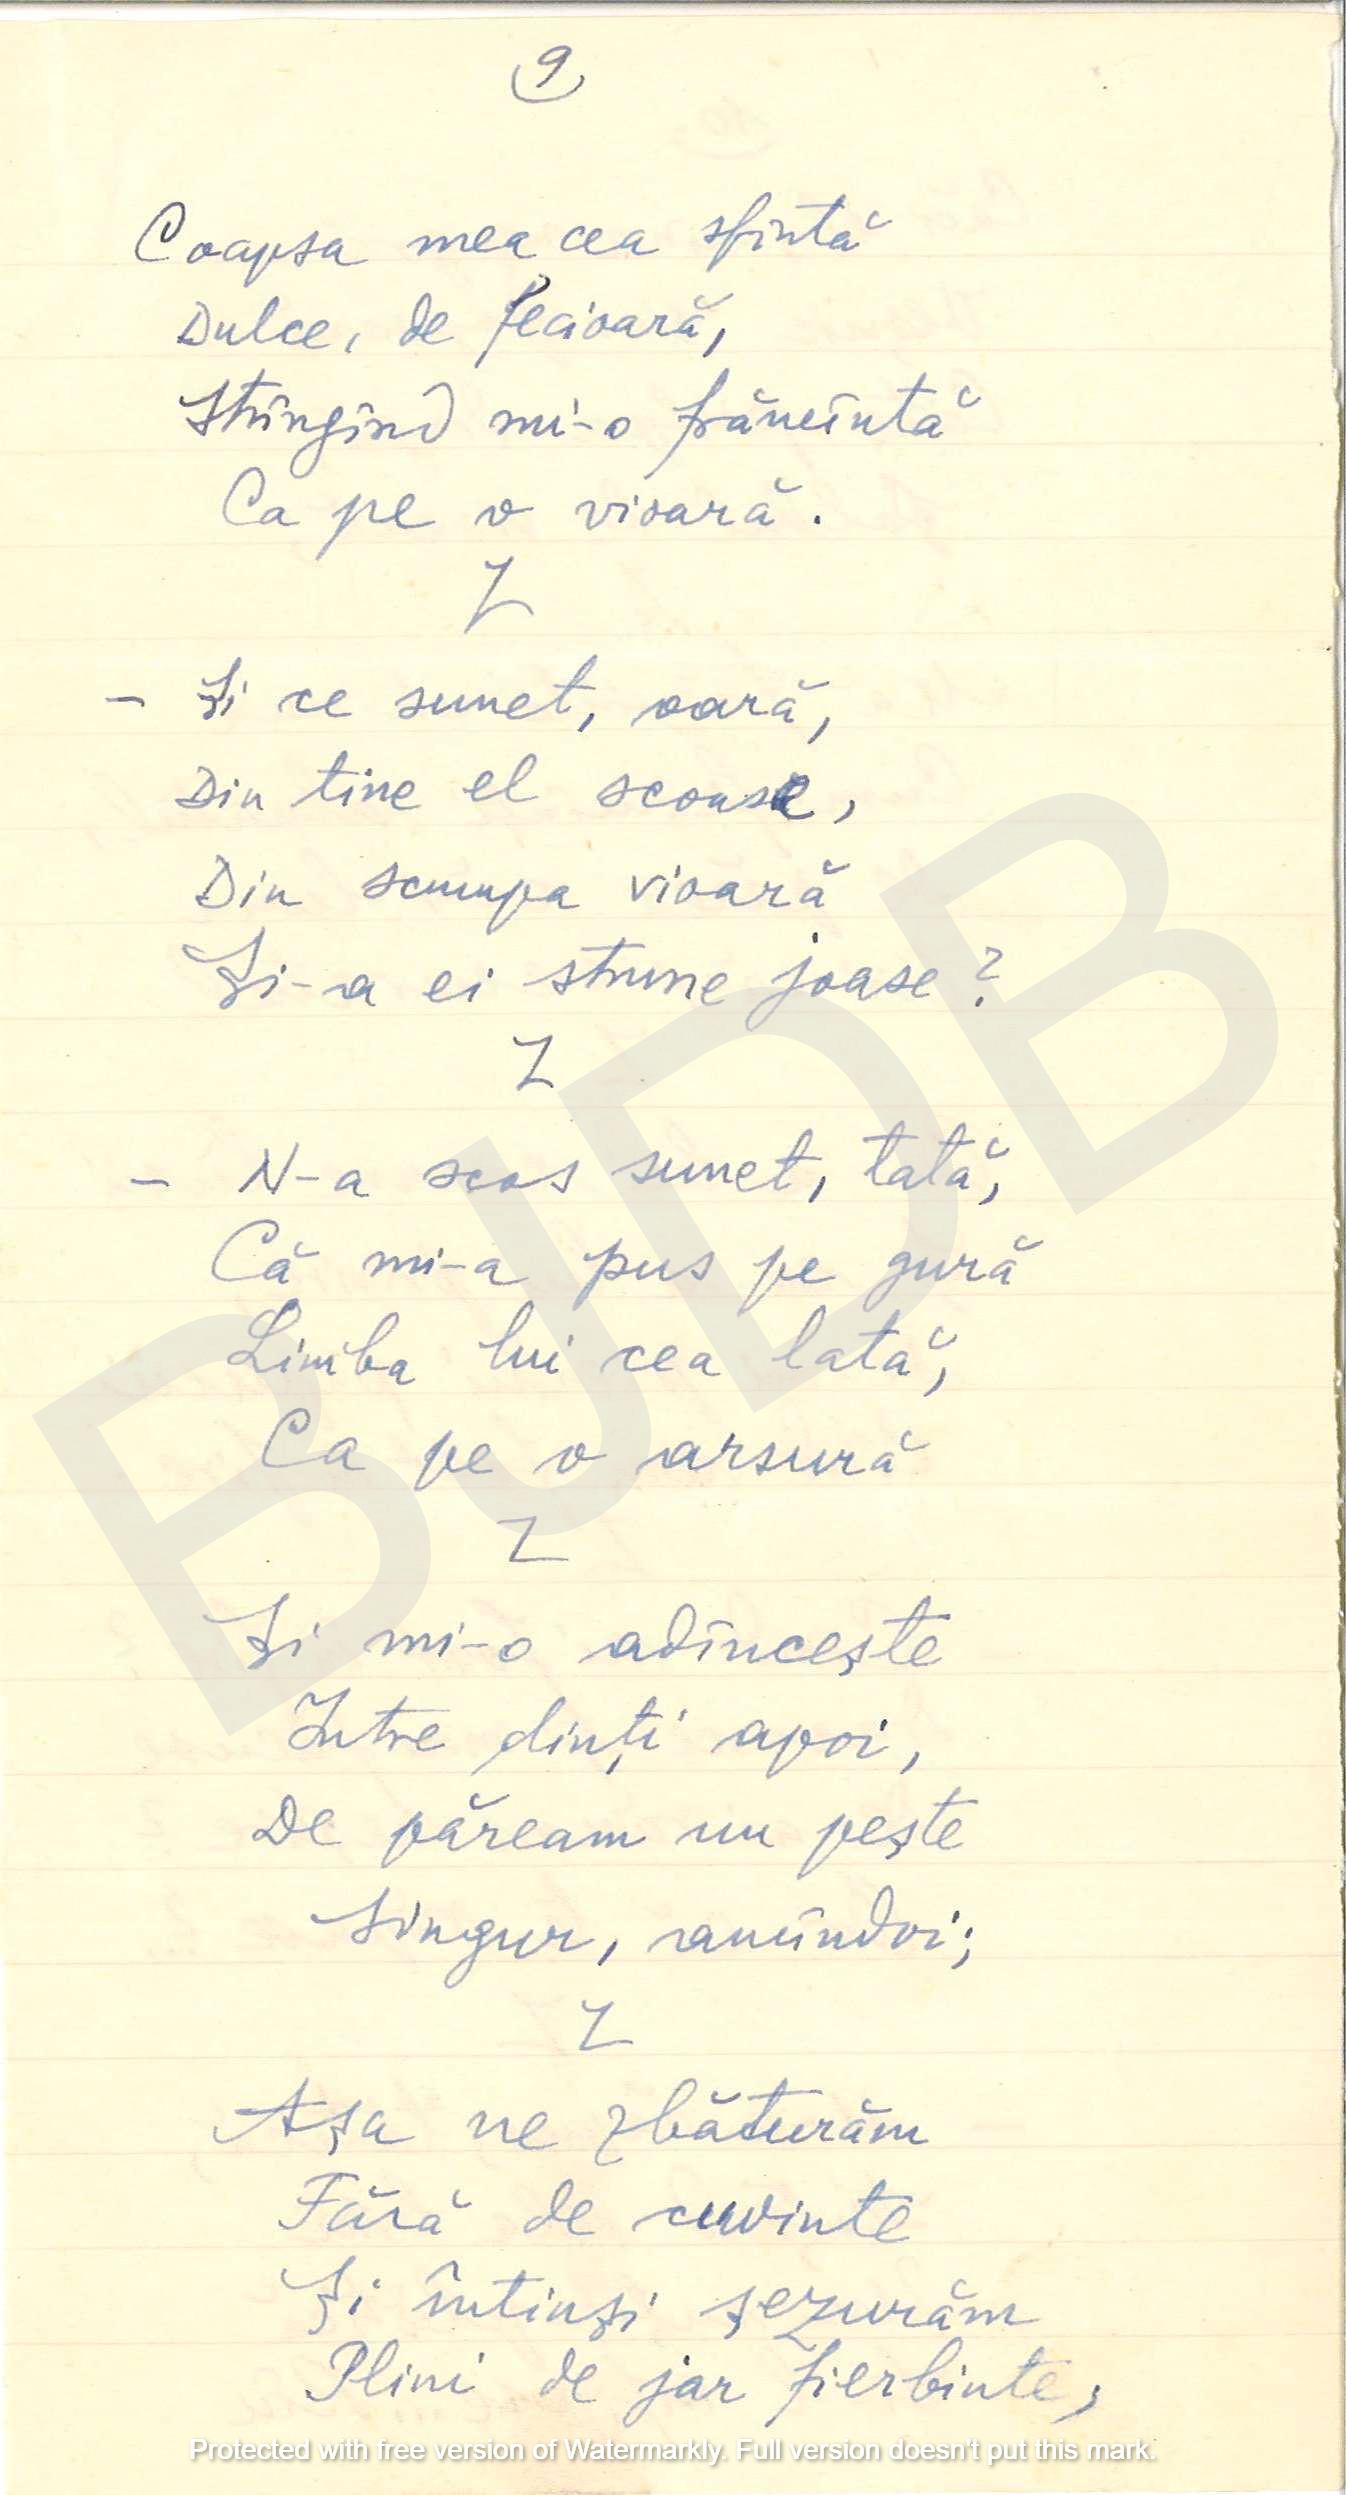 9
Coapsa mea cea sfintă
Dulce, de fecioară,
Strîngînd mi-o frămîntă
Ca pe o vioară.
Z
– Și ce sunet, oară,
Din tine el scoase,
Din scumpa vioară
Și-a ei strune joase?
Z
– N-a scos sunet, tată,
Că mi-a pus pe gură
Limba lui cea lată,
Ca pe o arsură
Z
Și mi-o adîncește
Între dinți apoi,
De păream un pește
Singur, amîndoi;
Z
Așa ne zbăturăm
Fără de cuvinte
Și întinși șezurăm
Plini de jar fierbinte,
BJDB
Protected with free version of Watermarkly. Full version doesn't put this mark.